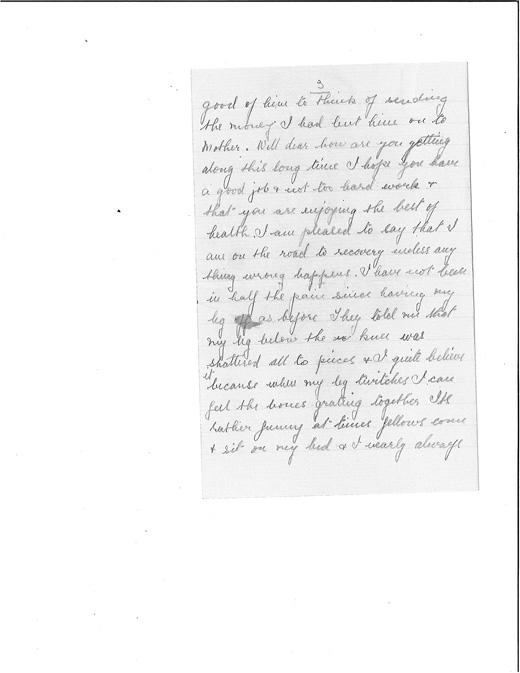 3
good of him to think of sending
the money I had lent him on to
Mother. Well dear how are you getting
along this long time I hope you have
a good job & not too hard work &
that you are enjoying the best of
health. I am pleased to say that I
am on the road to recovery unless any
thing wrong happens. I have not been
in half the pain since having my
leg off as before They told me that
my leg below the knee was
shattered all to pieces & I quite believe
it because when my leg twitches I can
feel the bones grating together Its
rather funny at times fellows come
& sit on my bed & I nearly always